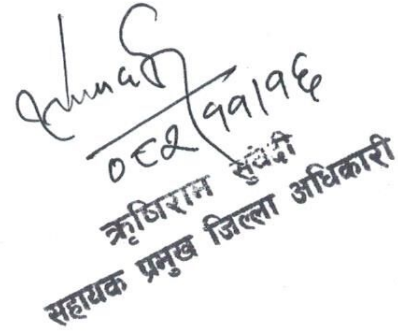 ०८२/११/१६
ऋषिराम सुवेदी
सहायक प्रमुख जिल्ला अधिकारी